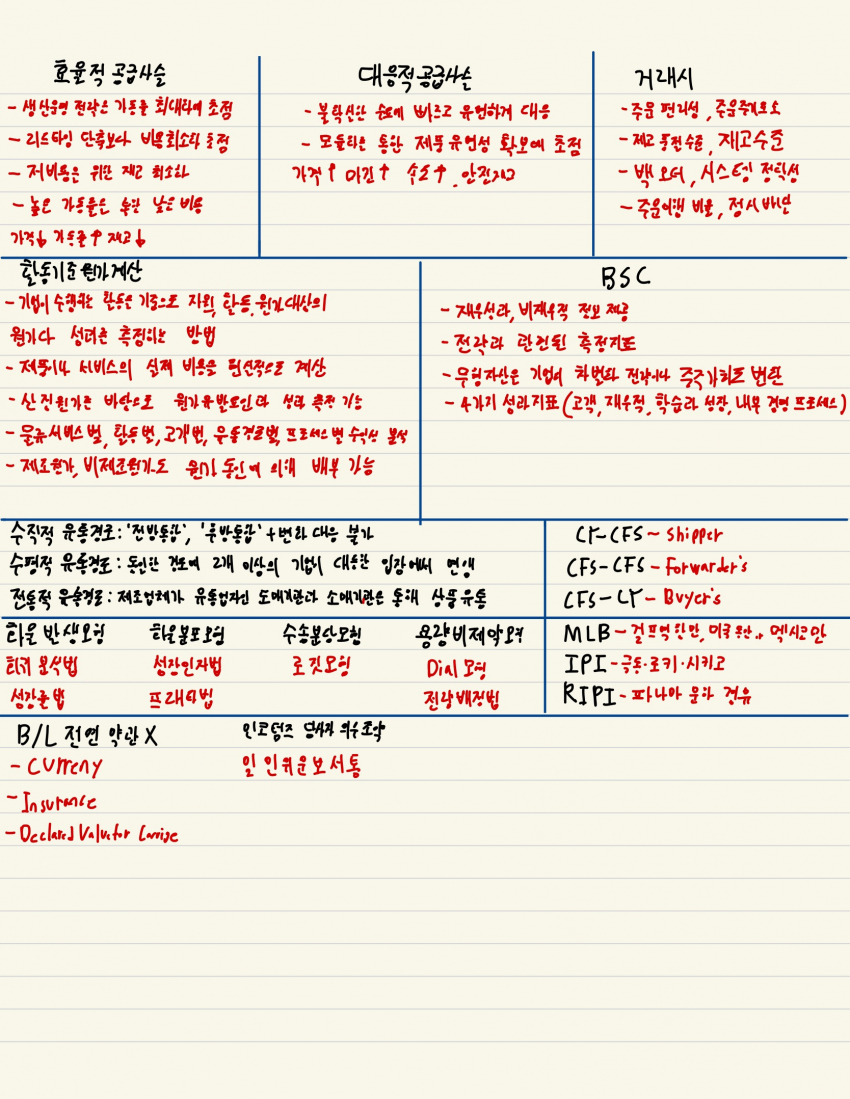 효율적 공급사슬
- 생산운영 전략은 가동률 최대화에 초점
- 리드타임 단축보다 비용최소화 초점
- 저비용을 위한 재고 최소화
- 높은 가동률을 통한 낮은 비용
가격↓ 가동률↑ 재고↓
대응적 공급사슬
- 불확실한 수요에 빠르고 유연하게 대응
- 모듈화를 통한 제품 유연성 확보에 초점
가격↑ 마진↑ 속도↑, 안전재고
거래시
- 주문 편리성, 주문주기요소
- 제고 품절수준, 재고수준
- 백 오더, 시스템 정확성
- 주문이행 비율, 정시 배달
활동기준원가계산
- 기업이 수행하는 활동을 기준으로 자원, 활동, 원가대상의
원가와 성과를 측정하는 방법
- 제품이나 서비스의 실제 비용을 현실적으로 계산
- 산정원가를 바탕으로 원가유발요인과 성과 측정 가능
- 물류서비스별, 활동별, 고객별, 유통경로별, 프로세스별 수익성 분석
- 제조원가, 비제조원가도 원가 동인에 의해 배부 가능
BSC
- 재무성과, 비재무적 정보 제공
- 전략과 관련된 측정지표
- 무형자산은 기업의 차별화 전략이나 주주가치로 변환
- 4가지 성과지표 (고객, 재무적, 학습과 성장, 내부 경영 프로세스)
수직적 유통경로: '전방통합', '후방통합' + 변화 대응 불가
수평적 유통경로: 동일한 경로에 2개 이상의 기업이 대등한 입장에서 연계
전통적 유통경로: 제조업체가 유통업자인 도매기관과 소매기관을 통해 상품 유통
CY-CFS - Shipper
CFS-CFS - Forwarder's
CFS-CY - Buyer's
화물 발생모형
회귀 분석법
성장률법
화물분포모형
성장인자법
프래타법
수송분산모형
로짓모형
용량비제약모형
Dial 모형
전량배정법
MLB - 걸프역 한만, 미국 동안, 멕시코만
IPI - 극동·로키·시카고
RIPI - 파나마 운하 경유
B/L 전면 약관 X
- Curreny
- Insurance
- Declared Value for Carrige
인코텀즈 당사자 의무조항
일 인위운보서통